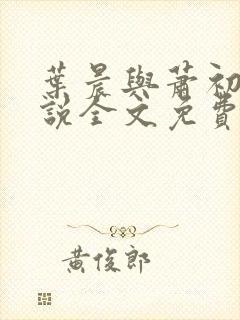 葉晨與蕭初
說全文免費
黃俊郎